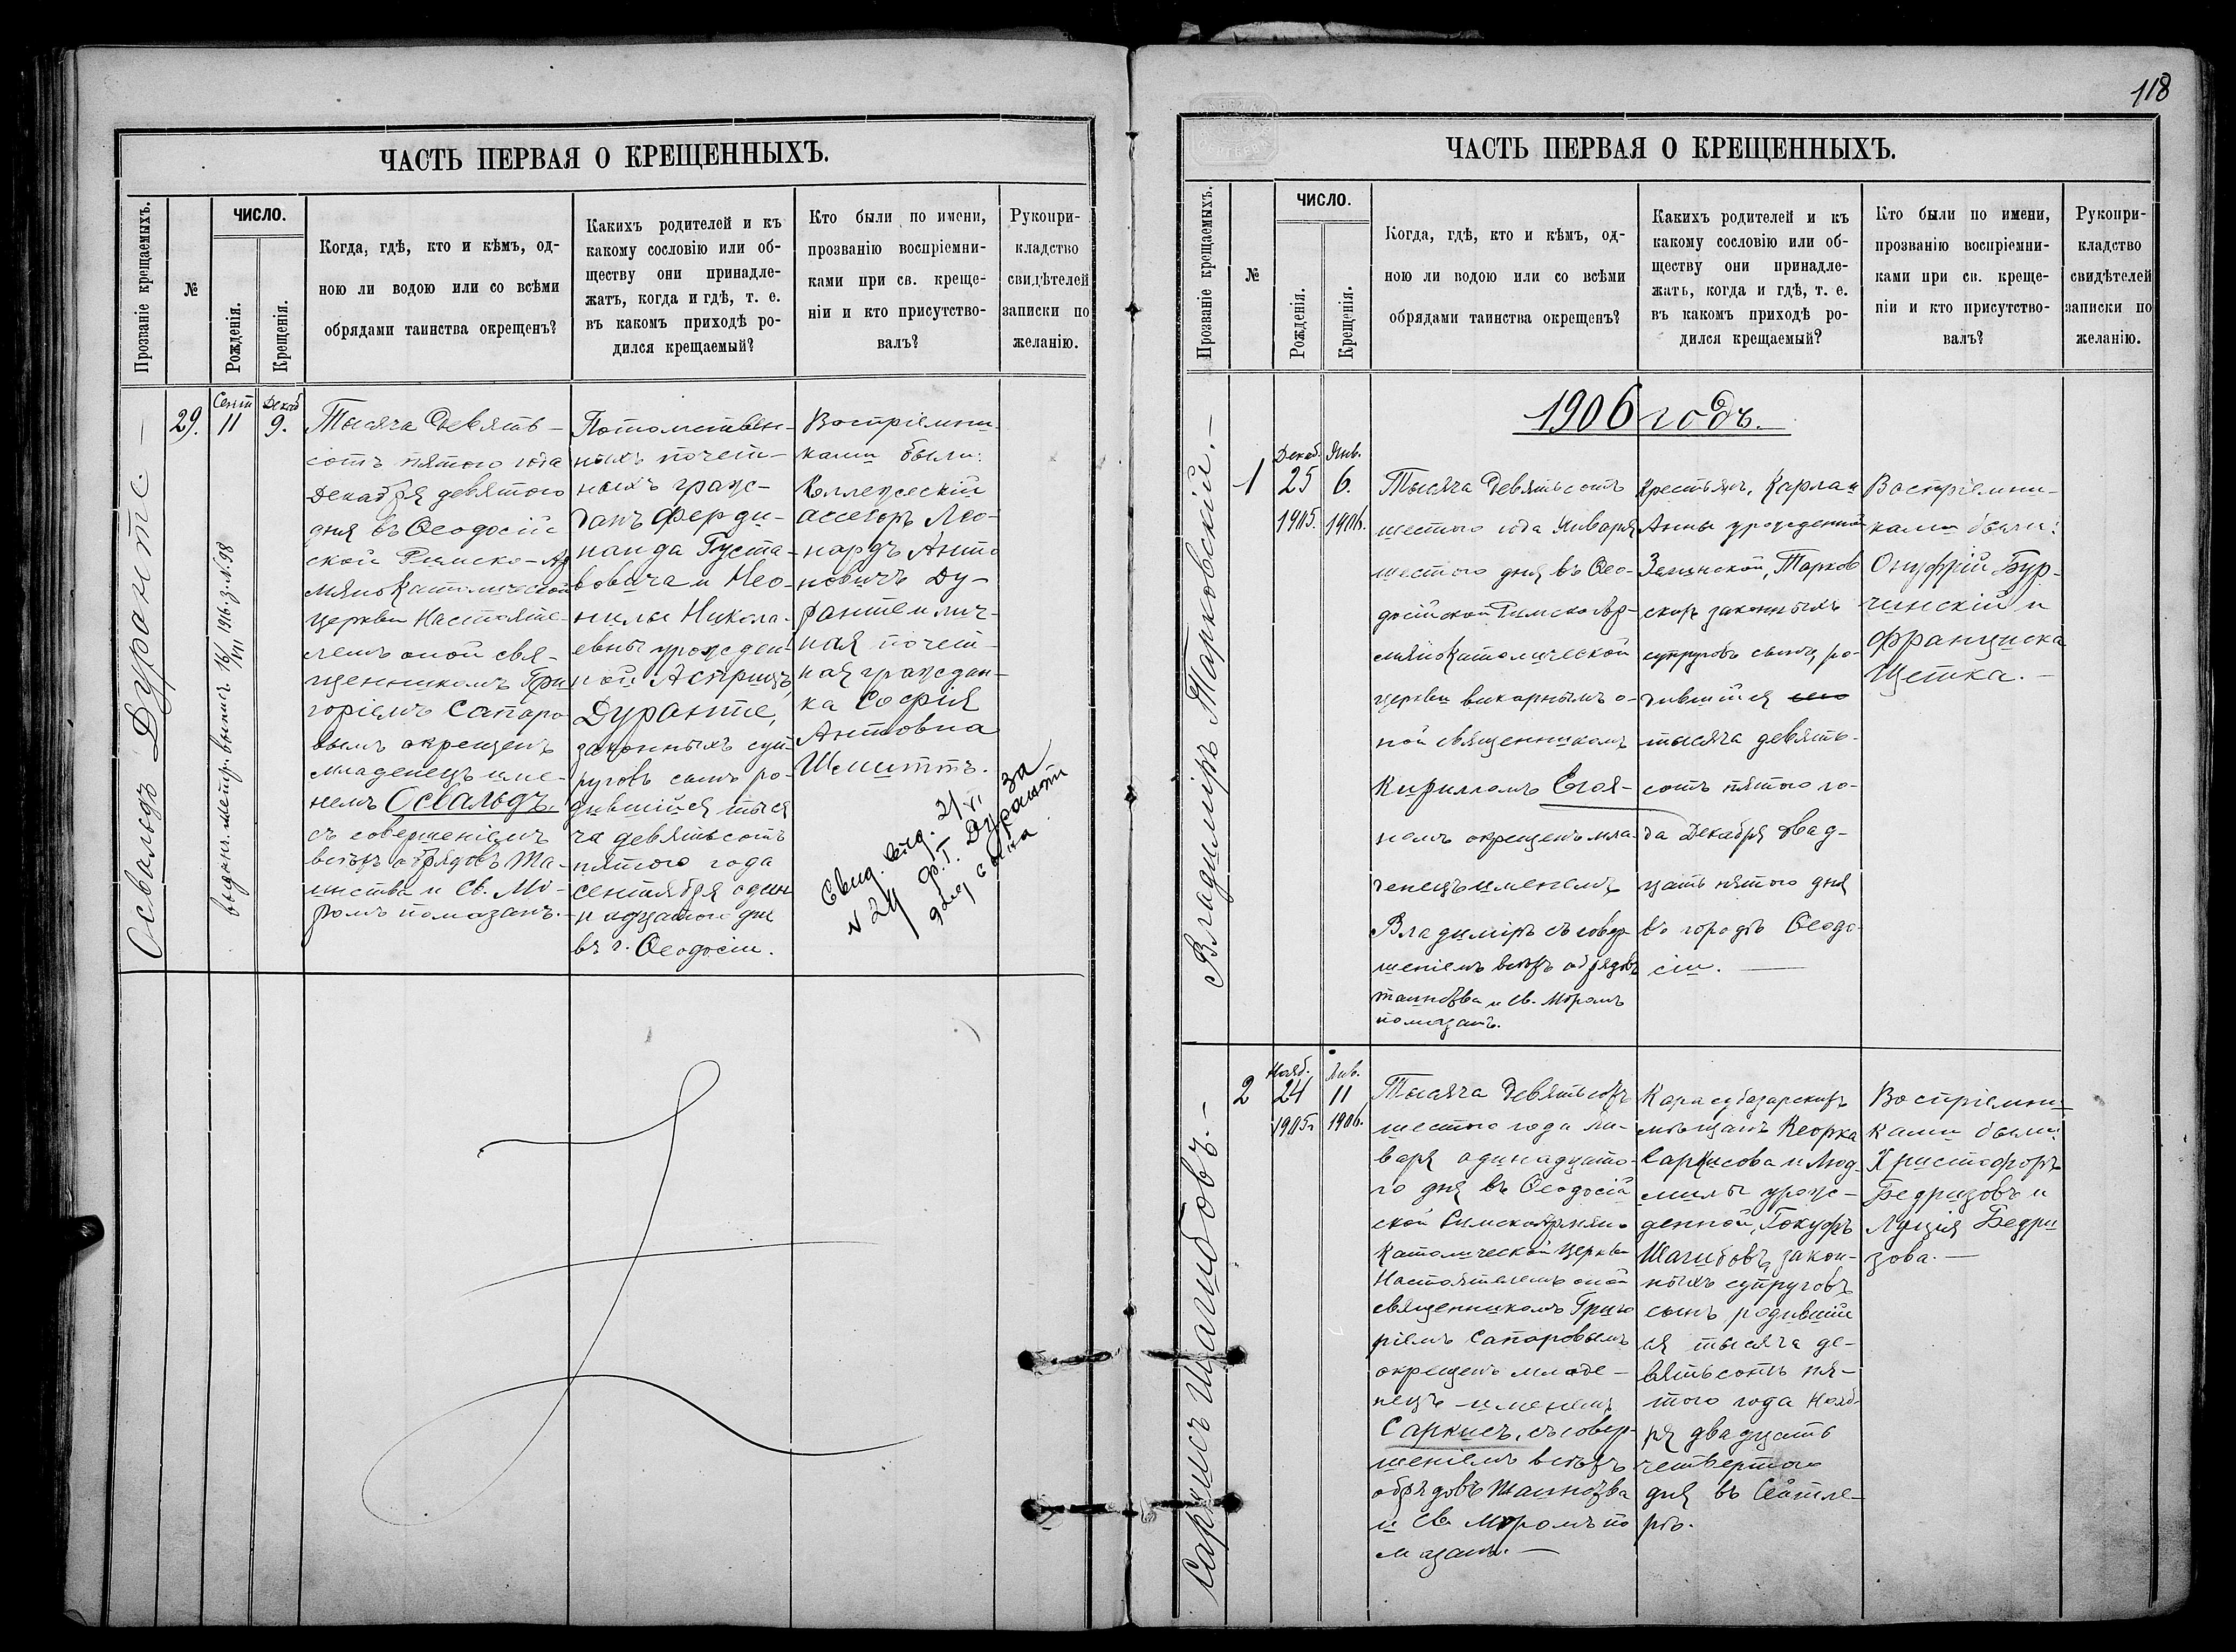 ЧАСТЬ ПЕРВАЯ О КРЕЩЕННЫХЪ.
Прозваніе крещаемыхъ.
№
ЧИСЛО.
Рожденія.
Крещенія.
Когда, гдѣ, кто и кѣмъ, од-
ною ли водою или со всѣми
обрядами таинства окрещенъ?
Какихъ родителей и къ
какому сословію или об-
ществу они принадле-
жатъ, когда и гдѣ, т. е.
въ какомъ приходѣ ро-
дился крещаемый?
Кто были по имени,
прозванію воспріемни-
ками при св. креще-
ніи и кто присутство-
валъ?
Рукопри-
кладство
свидѣтелей
записки по
желанію.
Освальдъ Дуранте. —
29.
Сент
11
Декаб
9.
выдан. метр. выпись 16/VII 1916 з. № 98
Тысяча девять-
сотъ пятого года
Декабря девятого
дня въ Ѳеодосій
ской Римско-Ар
мянокатолической
церкви Настояте-
лемъ оной свя-
щенникомъ Гри
горіемъ Сапаро
вымъ окрещенъ
младенецъ име-
немъ Освальдъ,
съ совершеніемъ
всѣхъ обрядовъ Та-
инства и Св. Мѵ-
ромъ помазанъ.
Потомствен-
ныхъ почет-
ныхъ граж-
данъ Ферди-
нанда Густа-
вовича и Нео-
нилы Никола-
евны урожден
ной Астрицъ,
Дуранте,
законныхъ суп-
руговъ сынъ ро-
дившійся тыся
ча девятьсотъ
пятого года
сентября один
надцатого дня
въ г. Ѳеодосіи.
Воспріемни
ками были:
Коллежскій
ассесоръ Лео-
нардъ Анто
новичъ Ду-
ранте и лич-
ная почет-
ная граждан-
ка Софія
Антовна
Шмиттъ.
Свид. выд. 21/VI за
№ 24 Ф. Г. Дуранти
для сына
118
ЧАСТЬ ПЕРВАЯ О КРЕЩЕННЫХЪ.
Прозваніе крещаемыхъ.
№
ЧИСЛО.
Рожденія.
Крещенія.
Когда, гдѣ, кто и кѣмъ, од-
ною ли водою или со всѣми
обрядами таинства окрещенъ?
Какихъ родителей и къ
какому сословію или об-
ществу они принадле-
жатъ, когда и гдѣ, т. е.
въ какомъ приходѣ ро-
дился крещаемый?
Кто были по имени,
прозванію воспріемни-
ками при св. креще-
ніи и кто присутство-
валъ?
Рукопри-
кладство
свидѣтелей
записки по
желанію.
1906 годъ.
Владиміръ Тарковскій. —
1
Декаб.
25
1905.
Янв.
6.
1906.
Тысяча девятьсотъ
шестого года Января
шестого дня въ Ѳео-
досійской Римско Ар-
мянокатолической
церкви викарнымъ о-
ной священникомъ
Кирилломъ
номъ окрещенъ мла-
денецъ именемъ
Владиміръ съ совер-
шеніемъ всѣхъ обрядовъ
таинства и Св. Мѵромъ
помазанъ.
Крестьянъ, Карла и
Анны урожденной
Тарков
скихъ законныхъ
супруговъ сынъ, ро-
дившійся
тысяча девять-
сотъ пятого го-
да Декабря двад-
цать пятого дня
въ городѣ Ѳеодо
сіи. —
Воспріемни-
ками были:
Онуфрій Бур-
чинскій и
Франциска
Щетка. —
Саркисъ Шагибовъ. —
2
Нояб.
24
1905.
Янв.
11
1906.
Тысяча девятьсотъ
шестого года Ян-
варя одинадцато-
го дня въ Ѳеодосій
ской Римско Армяно
Католической церкви
Настоятелемъ оной
священникомъ Григо
ріемъ Сапаровымъ
окрещенъ младе-
нецъ именемъ
Саркисъ, съ совер-
шеніемъ всѣхъ
обрядовъ Таинства
и Св. Мѵромъ по
мазанъ. —
Карасубазарскихъ
мѣщанъ Кеорка
Саркисова и Люд-
милы урож-
денной, Покуфъ
Шагибовъ, закон-
ныхъ супруговъ
сынъ родивший
ся тысяча де-
вятьсотъ пя-
того года Нояб
ря двадцать
четвертого
дня въ Сейтле-
рѣ.
Воспріемни-
ками были:
Христофоръ
Бедризовъ и
Луція Бедри
зова. —